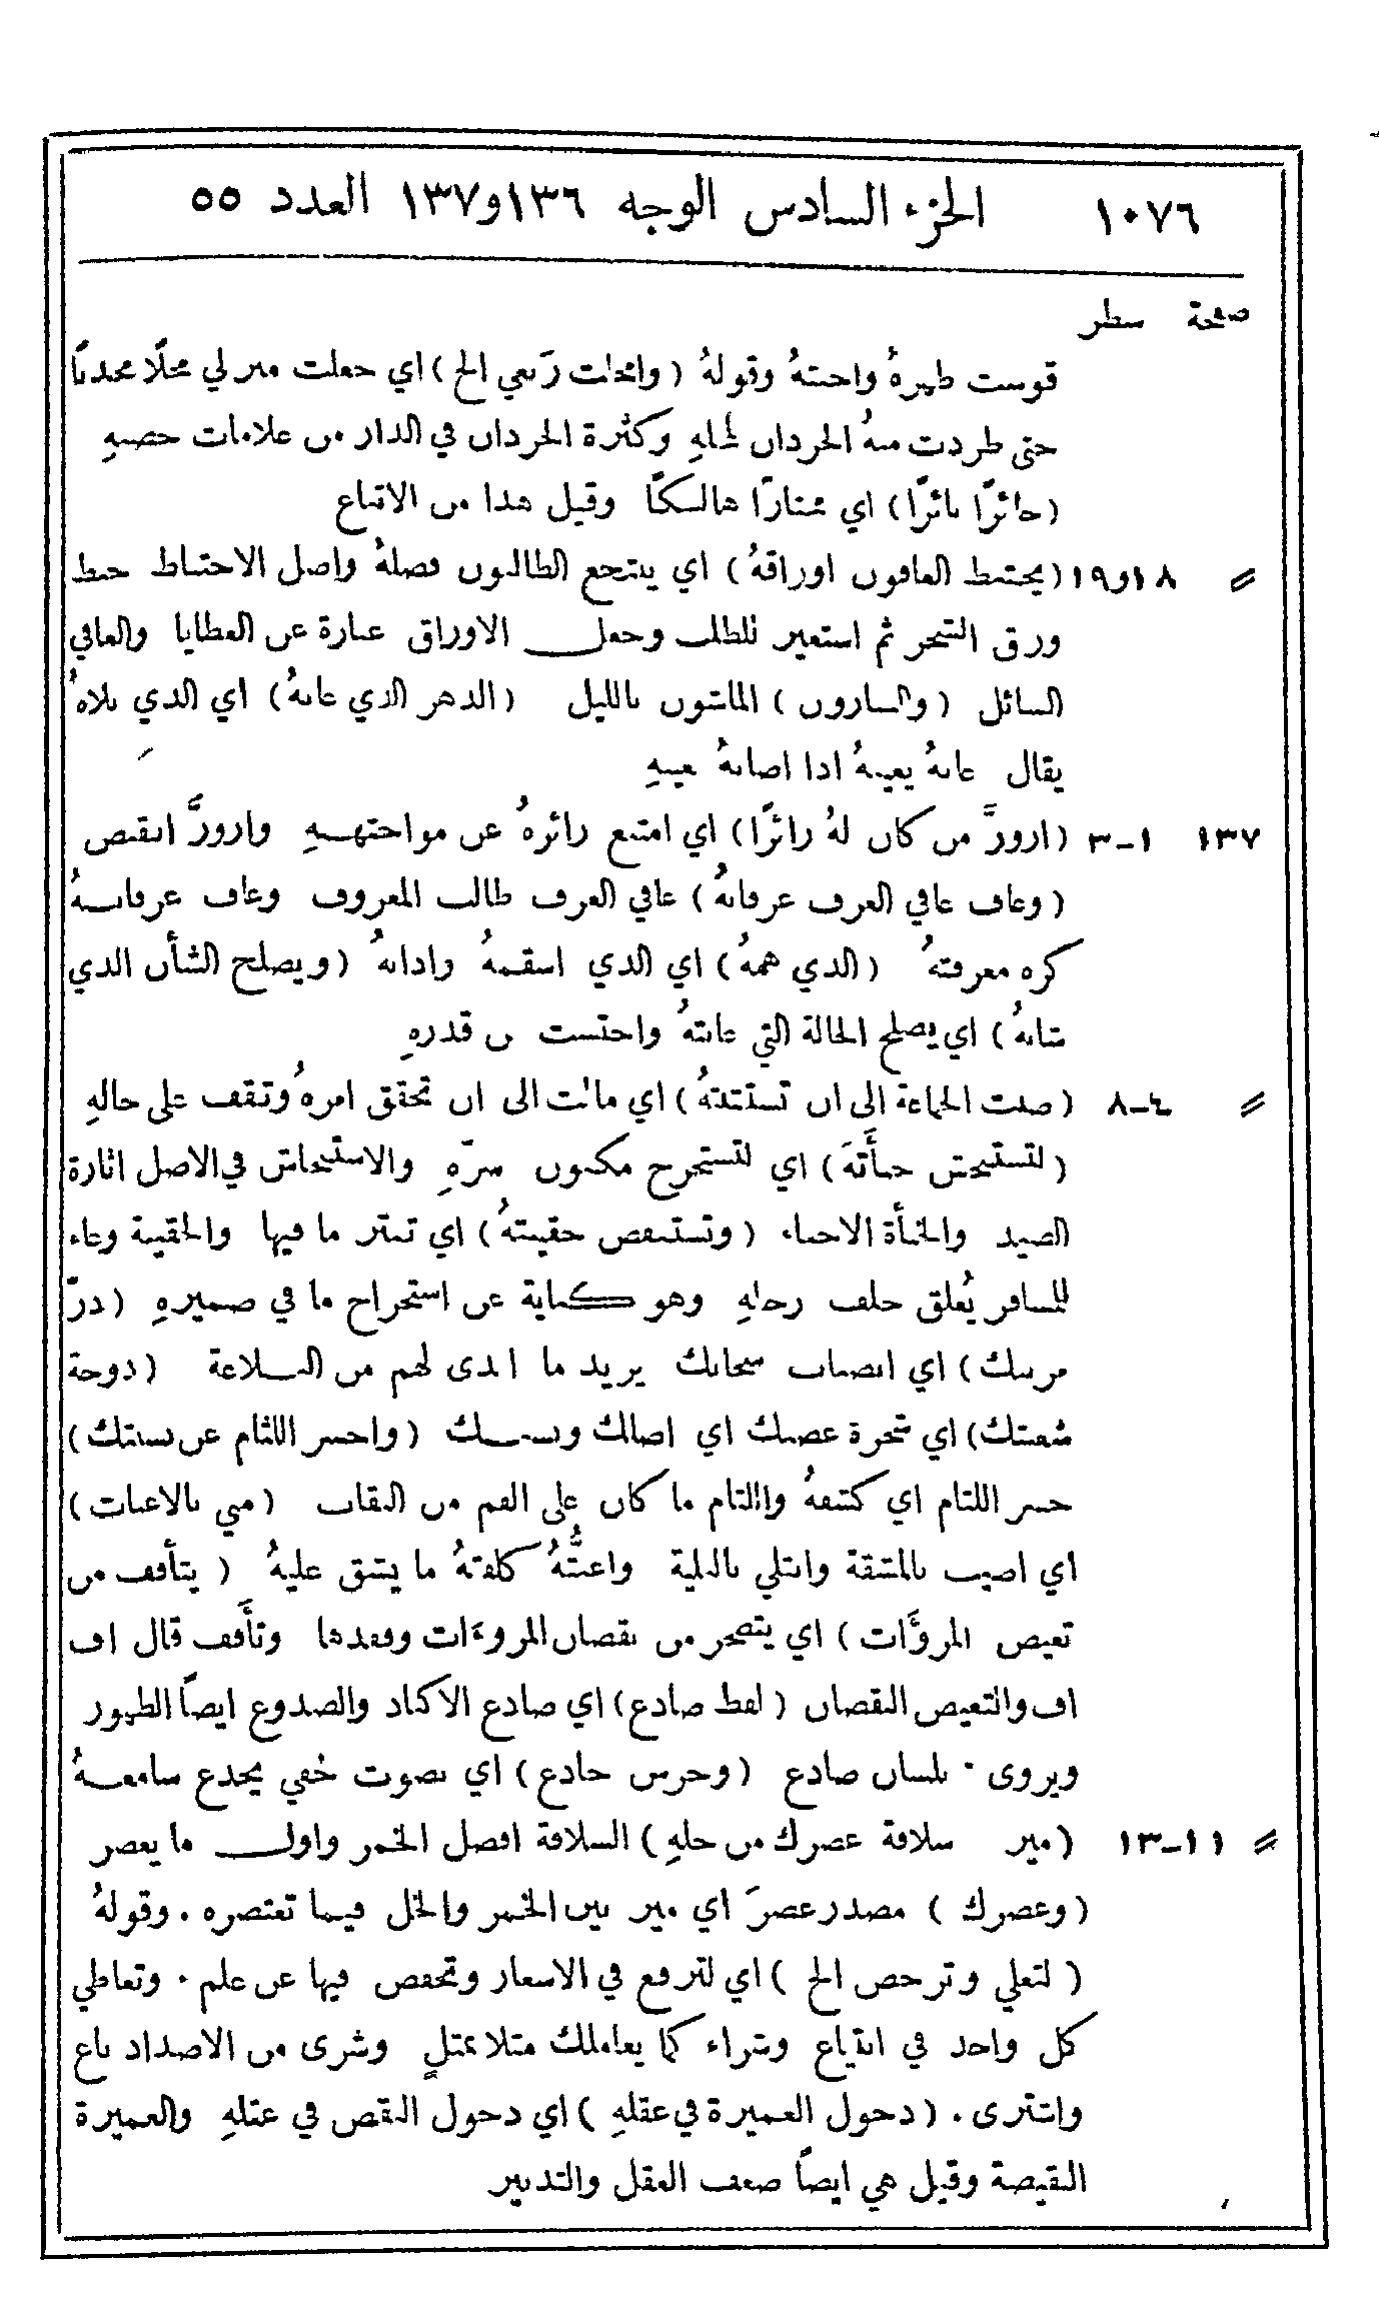 ١٠٧٦ الجزء السادس الوجه ١٣٦و١٣٧ العدد ٥٥
صفحة سطر
قوست ظهرهُ واحنتهُ وقولهُ (واخلت ربعي الخ) اي جعلت منزلي محلًّا مجدبًا
حتى طردت منهُ الجرذان لمحلهِ وكثرة الجرذان في الدار من علامات خصبهِ
(حائرًا بائرًا) اي محتارًا هالكًا وقيل هذا من الاتباع
〃 ١٨و١٩ (يختبط العافون اوراقهُ) اي ينتجع الطالبون فضلهُ واصل الاختباط خبط
ورق الشجر ثم استعير للطلب وجعل الاوراق عبارة عن العطايا والعافي
السائل (والسارون) الماشون بالليل (الدهر الذي عانهُ) اي الذي بلاهُ
يقال عانهُ يعينهُ اذا اصابهُ بعينهِ
١٣٧ ١-٣ (ازورَّ من كان لهُ زائرًا) اي امتنع زائرهُ عن مواجهتهِ وازورَّ انقبض
(وعاف عافي العرف عرفانهُ) عافي العرف طالب المعروف وعاف عرفانهُ
كره معرفتهُ (الذي همهُ) اي الذي اسقمهُ واذابهُ (ويصلح الشأن الذي
شانهُ) اي يصلح الحالة التي عابتهُ واحتسبت من قدرهِ
〃 ٤-٨ (صبت الجماعة الى ان تستثبتهُ) اي مالت الى ان تحقق امرهُ وتقف على حالهِ
(لتستنجش خبأَتهَ) اي لتستخرج مكنون سرّهِ والاستنجاش في الاصل اثارة
الصيد والخبأة الاخباء (وتستنفض حقيبتهُ) اي تنثر ما فيها والحقيبة وعاء
للمسافر يُعلق خلف رحلهِ وهو كناية عن استخراج ما في ضميرهِ (درّ
مزنك) اي انصباب سحابك يريد ما ابدى لهم من البلاغة (دوحة
شعبتك) اي شجرة غصنك اي اصلك ونسبك (واحسر اللثام عن نسبتك)
حسر اللثام اي كشفهُ واللثام ما كان على الفم من النقاب (مني بالاعنات)
اي اصيب بالمشقة وابتلي بالبلية واعنتَّهُ كلفتهُ ما يشق عليهُ (يتأفف من
تغيض المروَّات) اي يتضجر من نقصان المروءات وفقدها وتأَفف قال اف
اف والتغيض النقصان (لفظ صادع) اي صادع الاكباد والصدوع ايضًا الظهور
ويروى · بلسان صادع (وجرس خادع) اي بصوت خفي يخدع سامعهُ
〃 ١١-١٣ (ميز سلافة عصرك من خلهِ) السلافة افضل الخمر واول ما يعصر
(وعصرك) مصدر عصرَ اي ميز بين الخمر والخل فيما تعتصره . وقولهُ
(لتغلي وترخص الخ) اي لترفع في الاسعار وتخفض فيها عن علم . وتعاطي
كل واحد في ابتياع وشراء كما يعاملك مثلا بمثلٍ وشرى من الاضداد باع
واشترى . (دخول الغميزة في عقلهِ) اي دخول النقص في عقلهِ والغميزة
النقيصة وقيل هي ايضًا ضعف العقل والتدبير